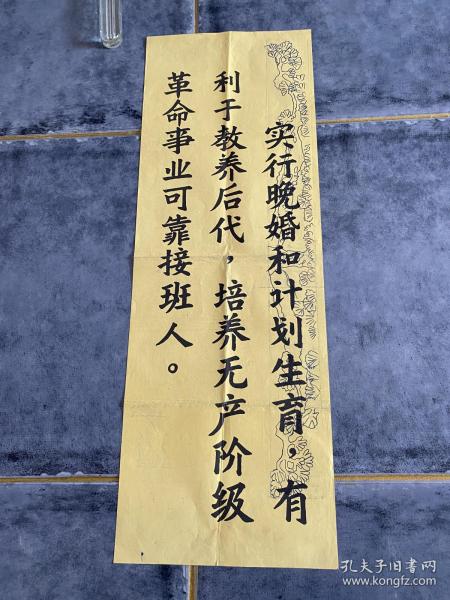 实行晚婚和计划生育，有
利于教养后代，培养无产阶级
革命事业可靠接班人。
孔夫子旧书网
www.kongfz.com